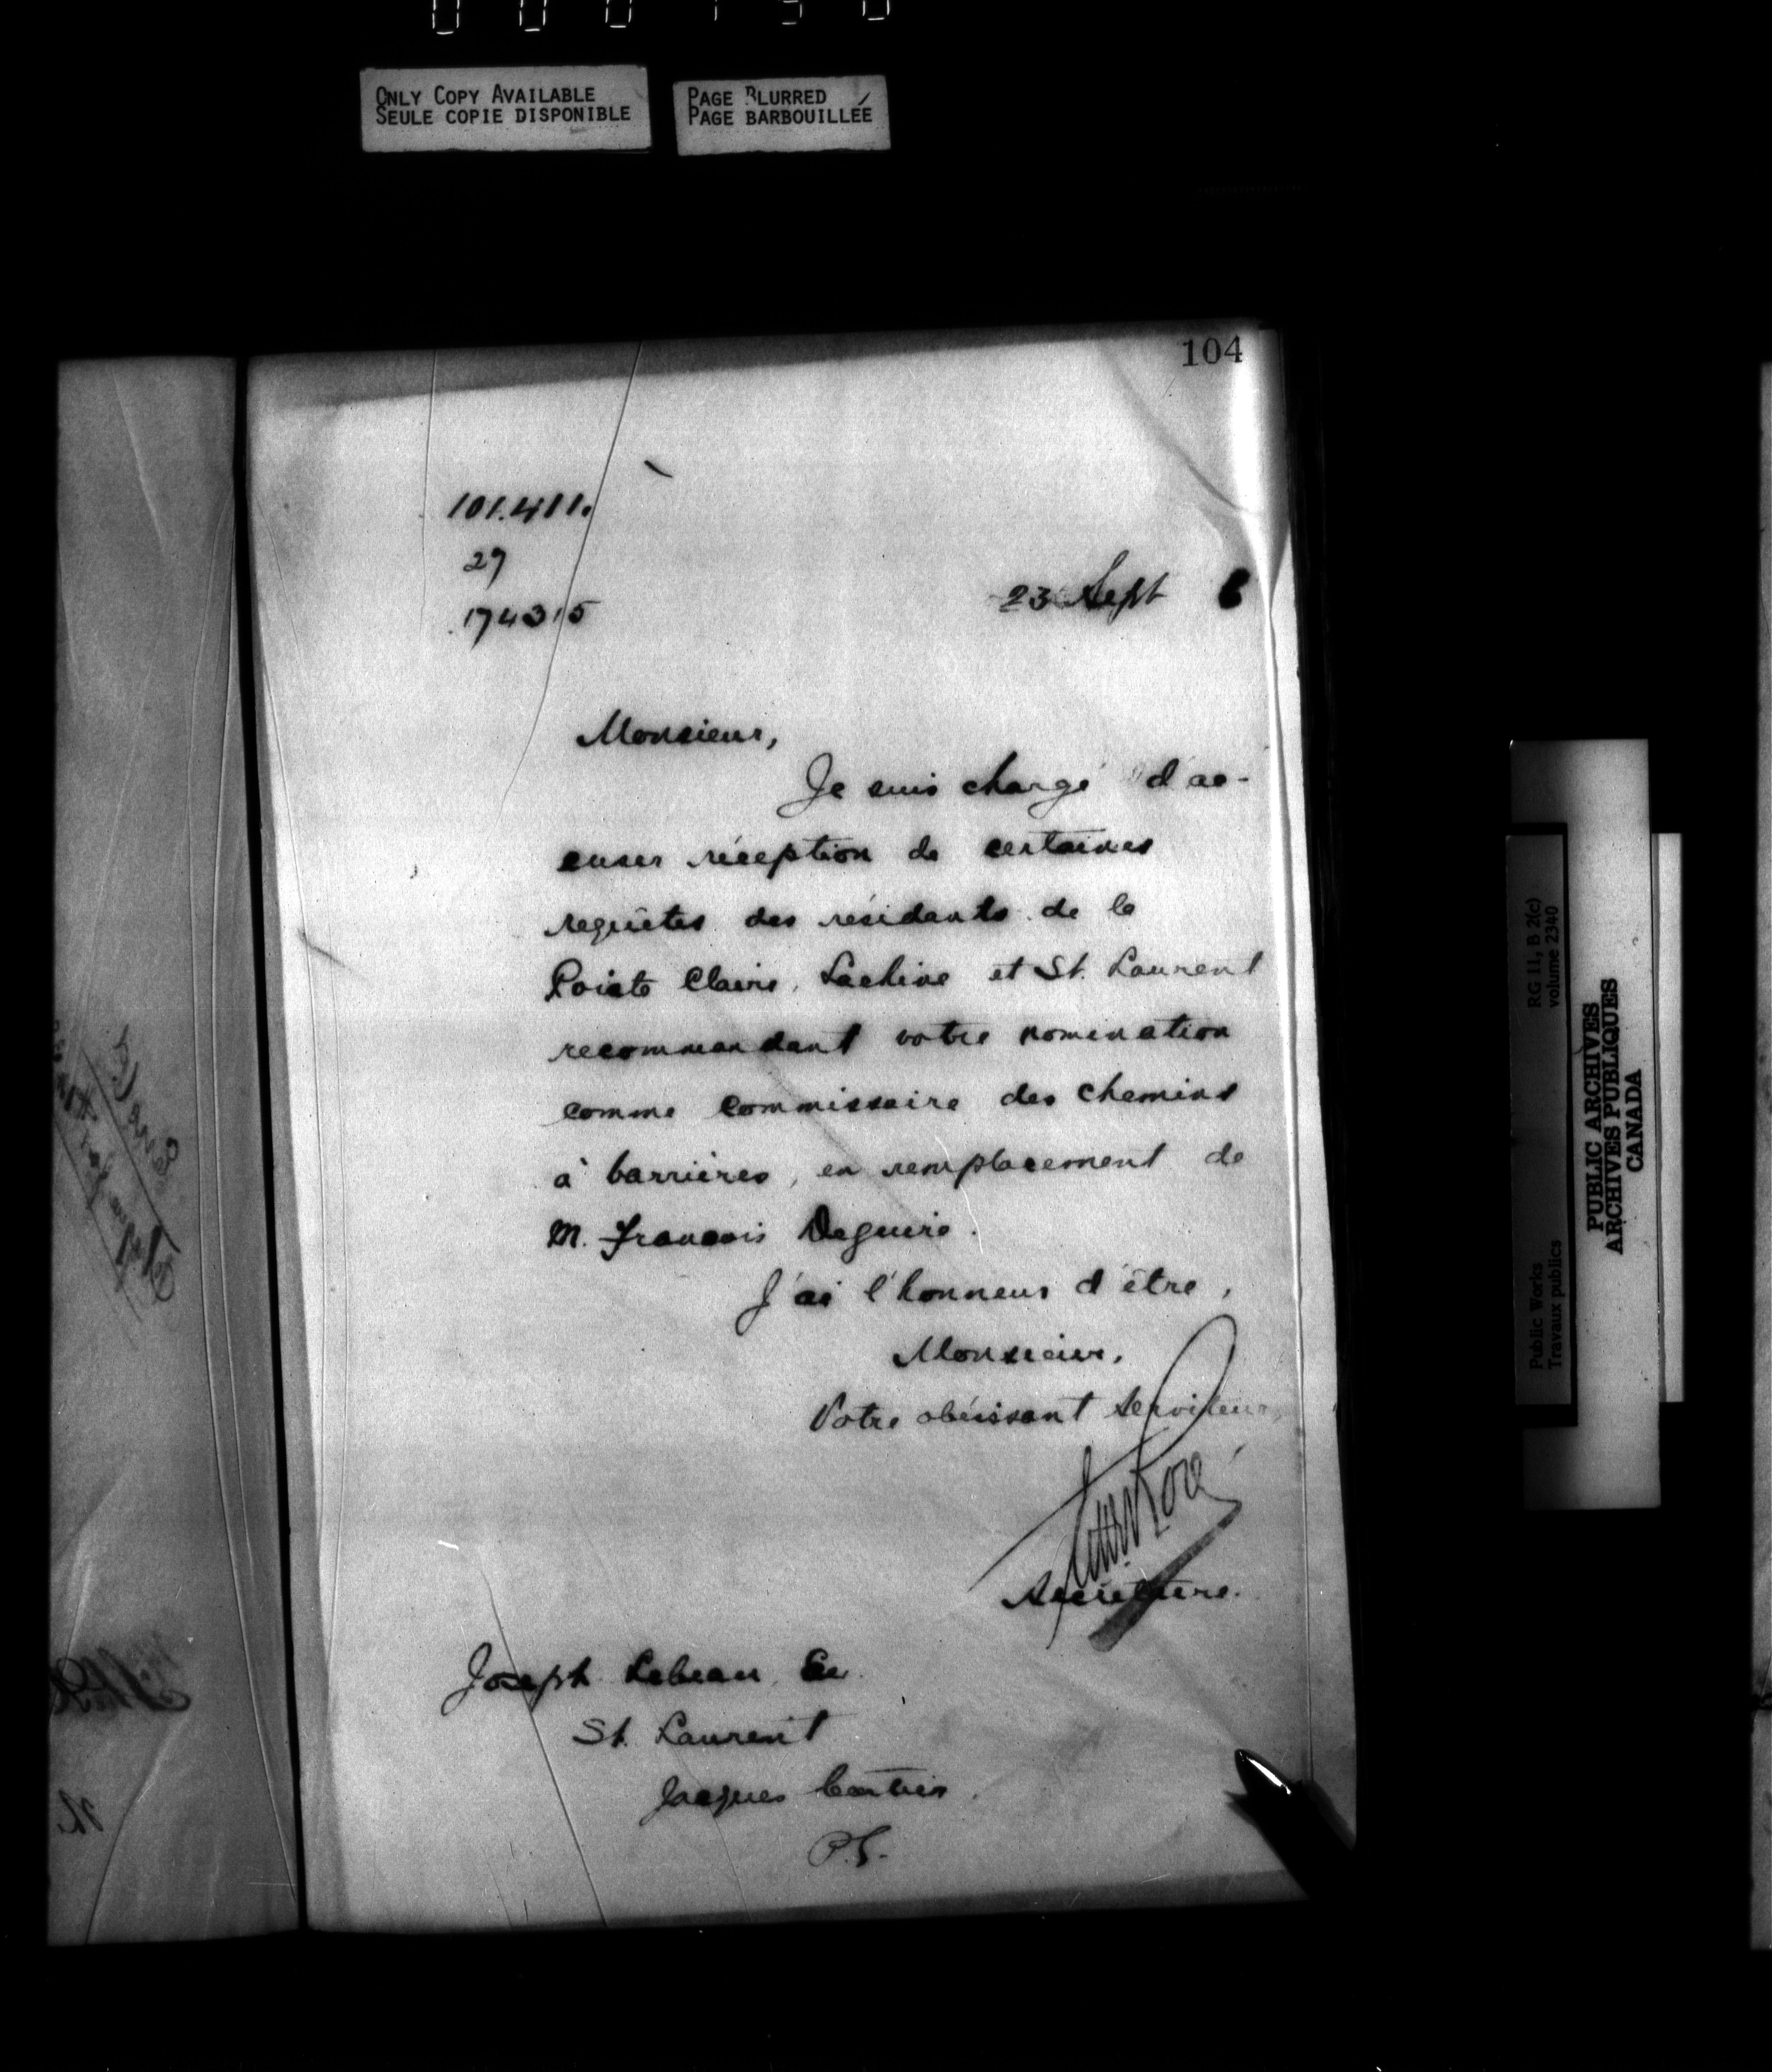 ONLY COPY AVAILABLE
SEULE COPIE DISPONIBLE
PAGE BLURRED
PAGE BARBOUILLÉE
104
101.411.
29
174315
23 Sept 6
Monsieur,
Je suis chargé d'ac-
cuser réception de certaines
requêtes des résidants de la
Pointe Claire, Lachine et St. Laurent
recommandant votre nomination
comme Commissaire des chemins
à barrières, en remplacement de
M. François Deguire.
J'ai l'honneur d'être,
Monsieur,
Votre obéissant serviteur,
Secrétaire.
Joseph Lebeau, Ec.
St. Laurent
Jacques Cartier.
P.Q.
RG 11, B 2(c)
volume 2340
Public Works
Travaux publics
PUBLIC ARCHIVES
ARCHIVES PUBLIQUES
CANADA